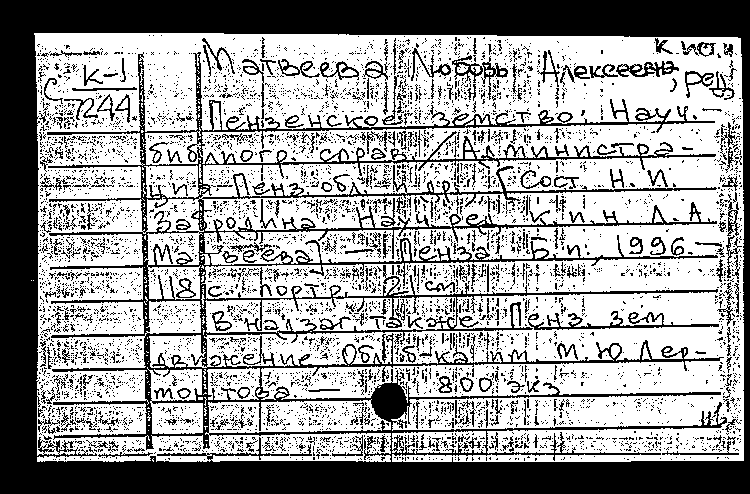 к ист. н.
Матвеева Любовь Алексеевна, ред
С К-1
7244.
Пензенское земство: Науч.-
библиогр. справ. / Администра-
ция Пенз. обл. и др.; [Сост. Н. И.
Забродина, Науч. ред. к.и.н. Л. А.
Матвеева]. — Пенза: Б.и., 1996.—
118 с., портр.; 21 cm
В надзаг. также: Пенз. зем.
движение, Обл. б-ка им. М. Ю. Лер-
монтова. — 800 экз